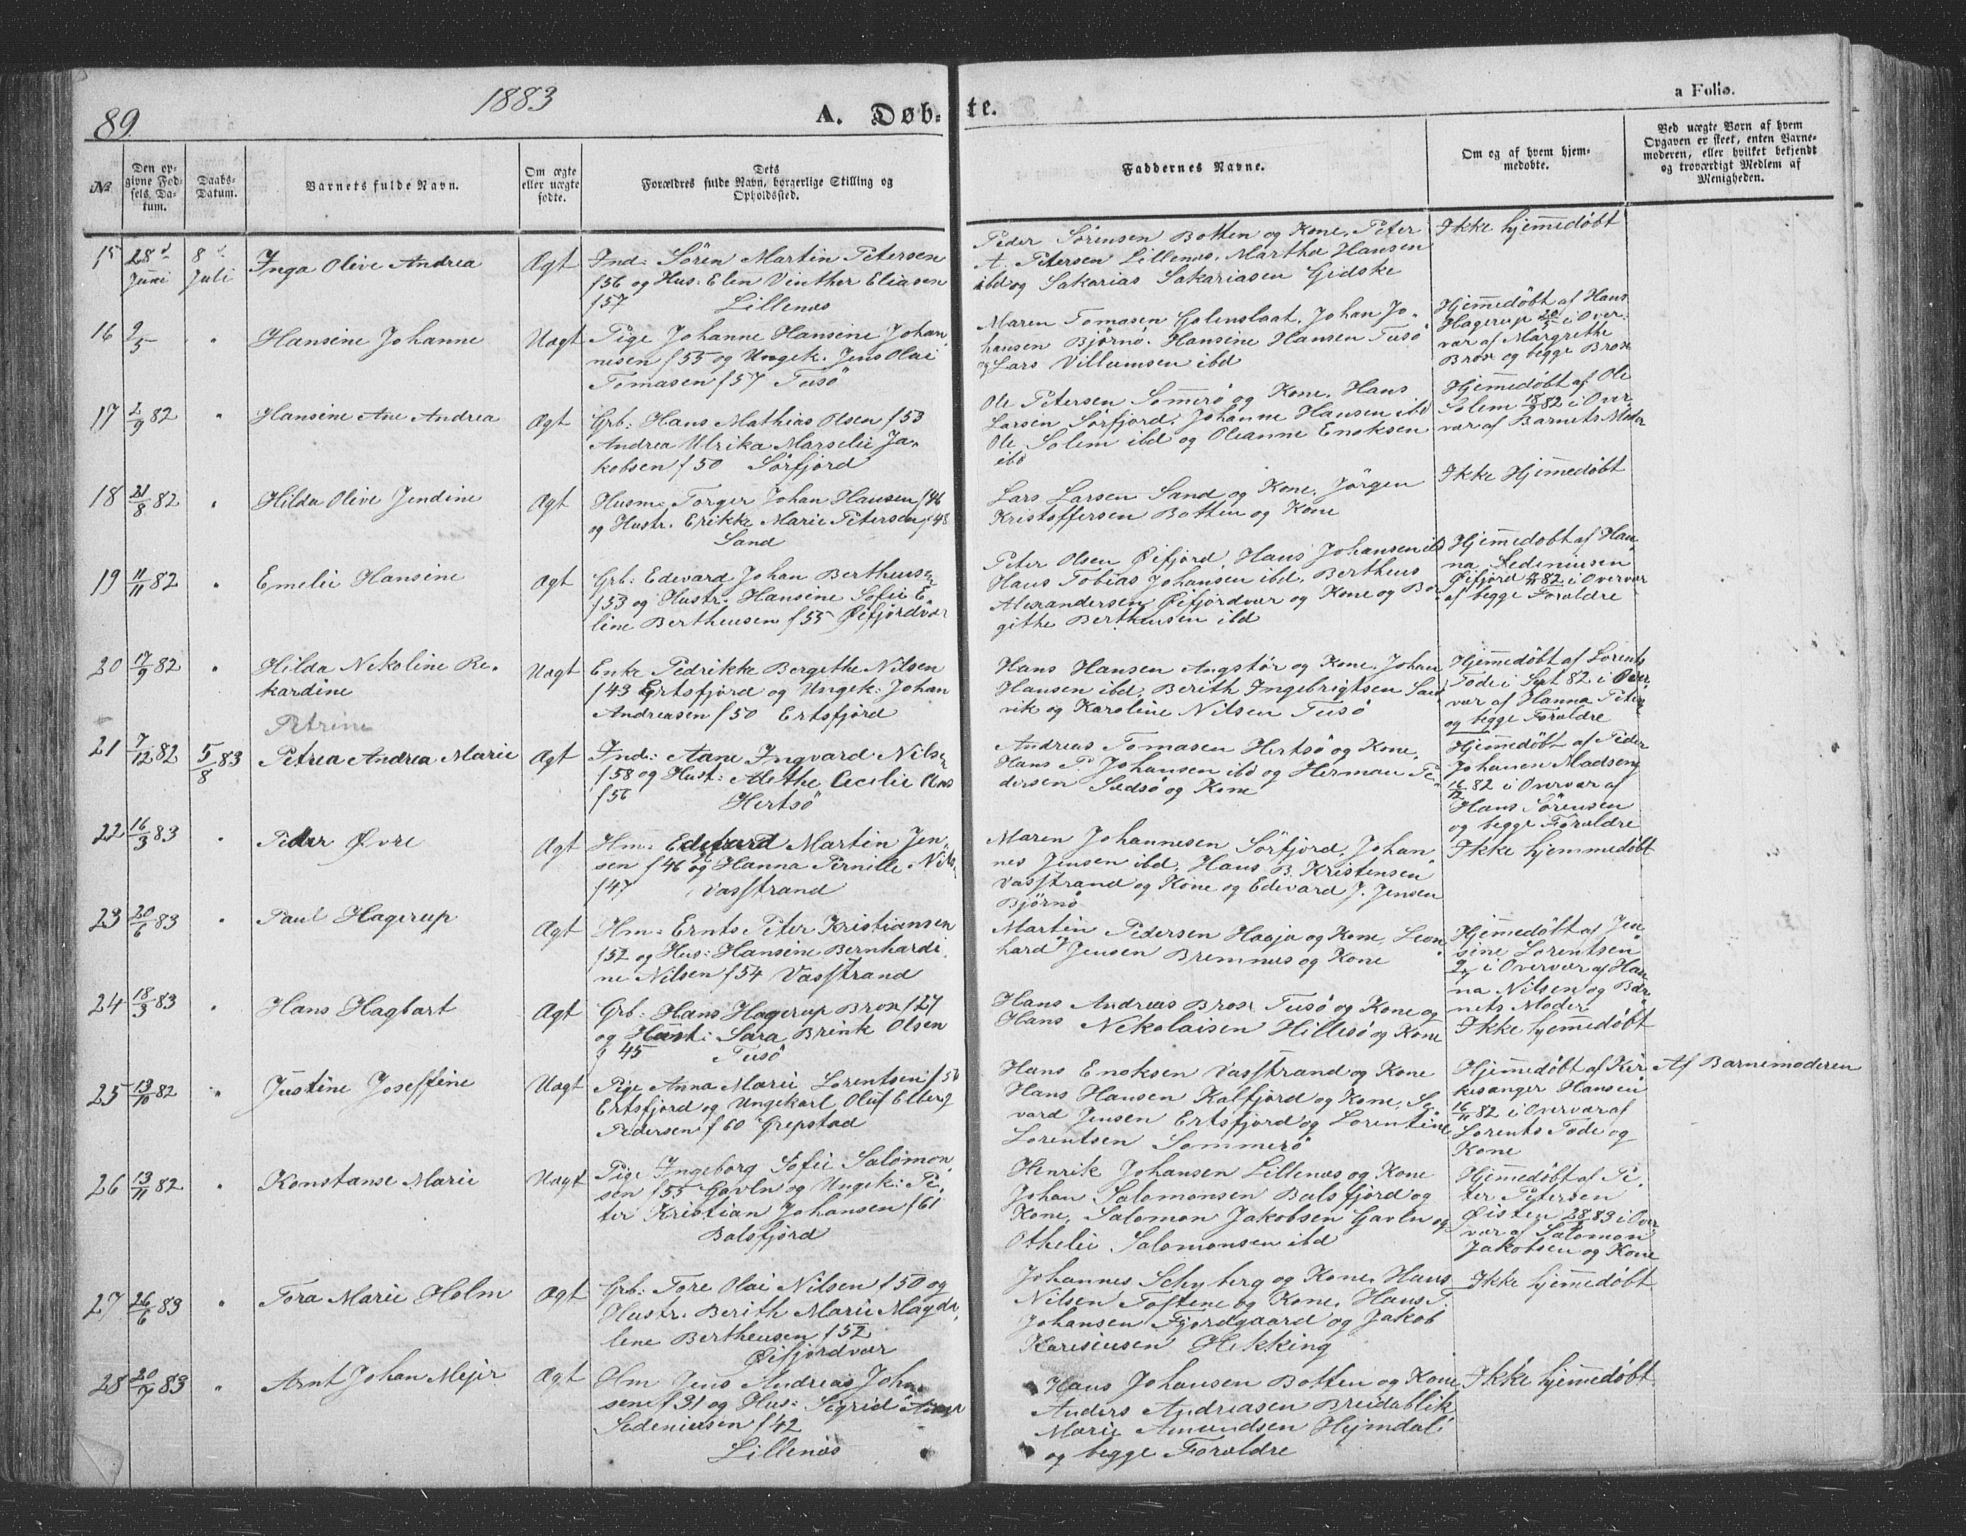 89.
1883
A. Døb-
te.
a Folio.
№
Den op-
givne Fød-
sels Da-
tum.
Daabs-
Datum.
Barnets fulde Navn.
Om ægte
eller uægte
fødte.
Dets
Forældres fulde Navn, borgerlige Stilling og
Opholdssted.
Faddernes Navne.
Om og af hvem hjem-
medøbte.
Ved uægte Børn af hvem
Opgaven er skeet, enten Barne-
moderen, eller hvilket bekjendt
og troværdigt Medlem af
Menigheden.
15 28de Juni 8de Juli Inga Olive Andrea Ægt
Ind: Sören Martin Petersen
f56 og Hus: Elen Vinther Eliasen
f57 Lillenæs
Peder Sørensen Botten og Kone, Peter
A. Petersen Lillenæs, Martha Hansen
ibd og Sakarias Sakariasen Gidske
Ikke hjemmedøbt
16 9/5 " Hansine Johanne Uægt
Pige Johanne Hansine Johan-
nesen f55 og Ungk. Jens Olai
Tomasen f57 Tusö
Maren Tomasen Galenslaat, Johan Jo-
hansen Björnö, Hansine Hansen Tusö
og Lars Villumsen ibd
Hjemmedøbt af Hans
Hagerup 20/5 i Over-
vær af Margrethe
Brox og begge Brox
17 2/9 82 " Hansine Ane Andrea Ægt
Grb: Hans Mathias Olsen f53
Andrea Ulrika Marselie Ja-
kobsen f50 Sörfjord
Ole Petersen Sommerø og Kone, Hans
Larsen Sörfjord, Johanne Hansen ibd
Ole Solem ibd og Oleanne Enoksen
ibd
Hjemmedøbt af Ole
Solem 18/9 82 i Over-
vær af Barnets Moder
18 21/8 82 " Hilda Olive Jendine Ægt
Husm: Torger Johan Hansen f46
og Hustr. Erikke Marie Petersen f48
Sand
Lars Larsen Sand og Kone, Jörgen
Kristoffersen Botten og Kone
Ikke Hjemmedøbt
19 11/11 82 " Emelie Hansine Ægt
Grb: Edevard Johan Bertheusen
f53 og Hustr. Hansine Sofie E-
line Bertheusen f55 Øifjordvær
Peter Olsen Øifjord, Hans Johansen ibd
Hans Tobias Johansen ibd, Bertheus
Alexandersen Øifjordvær og Kone og Bor-
githe Bertheusen ibd
Hjemmedøbt af Han-
na Sedeniusen
Øifjord 82 i Overvær
af begge Forældre
20 17/9 82 " Hilda Nekoline Re-
kardine Uægt
Enke Pedrikke Bergethe Nilsen
f43 Ertsfjord og Ungk: Johan
Andreasen f50 Ertsfjord
Hans Hansen Angstør og Kone, Johan
Hansen ibd, Berith Ingebrigtsen Sand-
vik og Karoline Nilsen Tusö
Hjemmedøbt af Lorents
Tode i Sept 82 i Over-
vær af Hanna Peter
og begge Forældre
Petrine
21 7/12 82 5/8 83 Petrea Andrea Marie Ægt
Ind: Aane Ingvard Nilsen
f58 og Hust: Alethe Cecilie Aas
f56 Hertsö
Andreas Tomasen Hertsö og Kone,
Hans P Johansen ibd og Herman Pe-
dersen Sædsö og Kone
Hjemmedøbt af Peder
Johanen Madsen
16/12 82 i Overvær af
Hans Sörensen
og begge Forældre
22 16/3 83 " Peder Øvre Ægt
Hm: Edevard Martin Jen-
sen f46 og Hanna Pernille Nils
f47 Vasstrand
Maren Johannesen Sörfjord, Johan-
nes Jensen ibd, Hans B. Kristensen
Vasstrand og Kone og Edevard J. Jensen
Björnö
Ikke hjemmedøbt
23 20/6 83 " Paul Hagerup Ægt
Hm: Ernts Peter Kristiansen
f52 og Hus: Hansine Bernhardi-
ne Nilsen f54 Vasstrand
Martin Pedersen Haaja og Kone, Leon-
hard Jensen Bremnes og Kone
Hjemmedøbt af Jen-
sine Lorentsen
9/7 i Overvær af Han-
na Nilsen og Bar-
nets Moder
24 18/3 83 " Hans Hagbart Ægt
Grb: Hans Hagerup Brox f27
og Hust: Sara Brink Olsen
f 45 Tusö
Hans Andreas Brox Tusö og Kone og
Hans Nekolaisen Hillesö og Kone
Ikke hjemmedøbt
25 13/10 82 " Justine Joseffine Uægt
Pige Anna Marie Lorentsen f56
Ertsfjord og Ungekarl Oluf Ellerg
Pedersen f60 Grepstad
Hans Enoksen Vasstrand og Kone
Hans Hansen Kalfjord og Kone, Se-
vard Jensen Ertsfjord og Lorentine
Lorentsen Sommerö
Hjemmedøbt af Kir-
kesanger Hansen
16/11 82 i Overvær af
Lorents Tode og
Kone
Af Barnemoderen
26 13/11 82 " Konstanse Marie Uægt
Pige Ingeborg Sofie Salomon-
sen f55 Gavln og Ungek: Pe-
ter Kristian Johansen f61
Balsfjord
Henrik Johansen Lillenæs og Kone
Johan Salomonsen Balsfjord og
Kone, Salomon Jakobsen Gavln og
Othelie Salomonsen ibd
Hjemmedøbt af Pe-
ter Petersen
Øisten 28/1 83 i Over-
vær af Salomon
Jakobsen og Kone
27 26/6 83 " Tora Marie Holm Ægt
Grb: Tore Olai Nilsen f50 og
Hustr. Berith Marie Magda-
lene Bertheusen f52
Øifjordvær
Johannes Schyberg og Kone, Hans
Nilsen Toftene og Kone, Hans T.
Johansen Fjordgaard og Jakob
Kariseusen Hekking
Ikke hjemmedøbt
28 20/7 83 " Arnt Johan Mejer Ægt
Hm Jens Andreas Johan-
sen f31 og Hus: Sigrid Anne
Sedeniusen f42
Lillenæs
Hans Johansen Botten og Kone
Anders Andreasen Breidablik
Marie Amundsen Hejmdal
og begge Forældre
Ikke hjemmedøbt